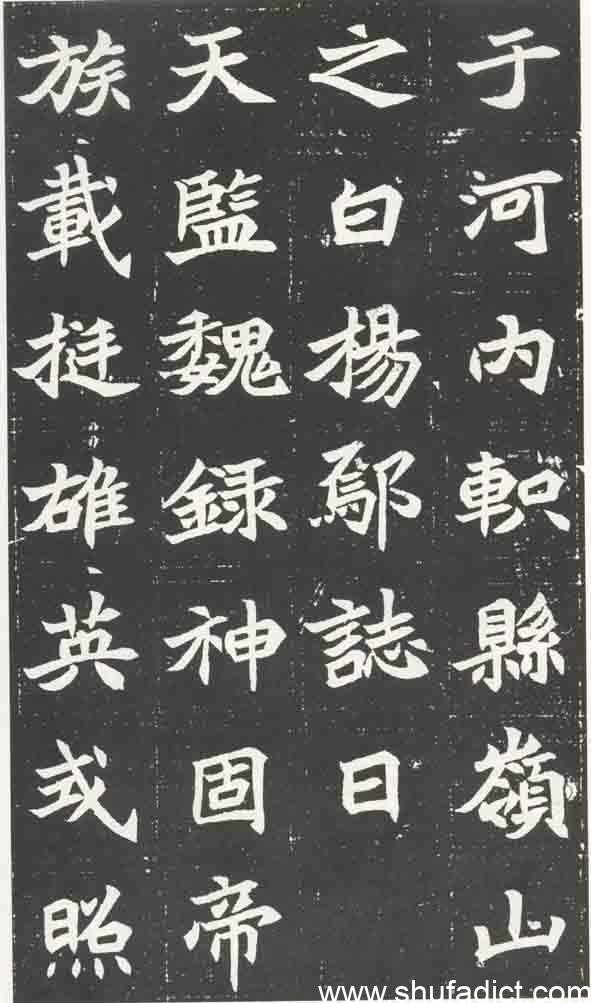 于河内軹縣嶺山
之白楊鄔誌曰
天監魏録神固帝
族載挺雄英或照
www.shufadict.com